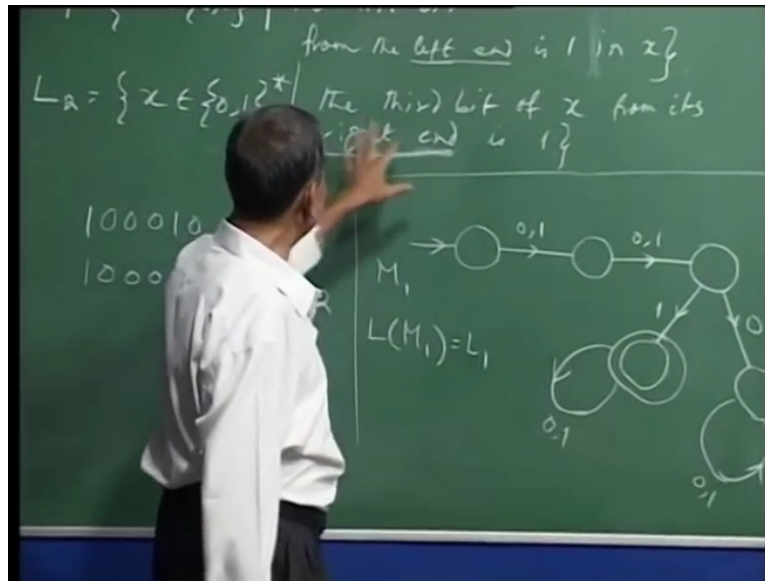 from the left end is 1 in x}
L₂ = { x ∈ {0,1}* | the third bit of x from its
right end is 1}
10001
1000
0,1
0,1
M₁
1
0
L(M₁)=L₁
0,1
0,1